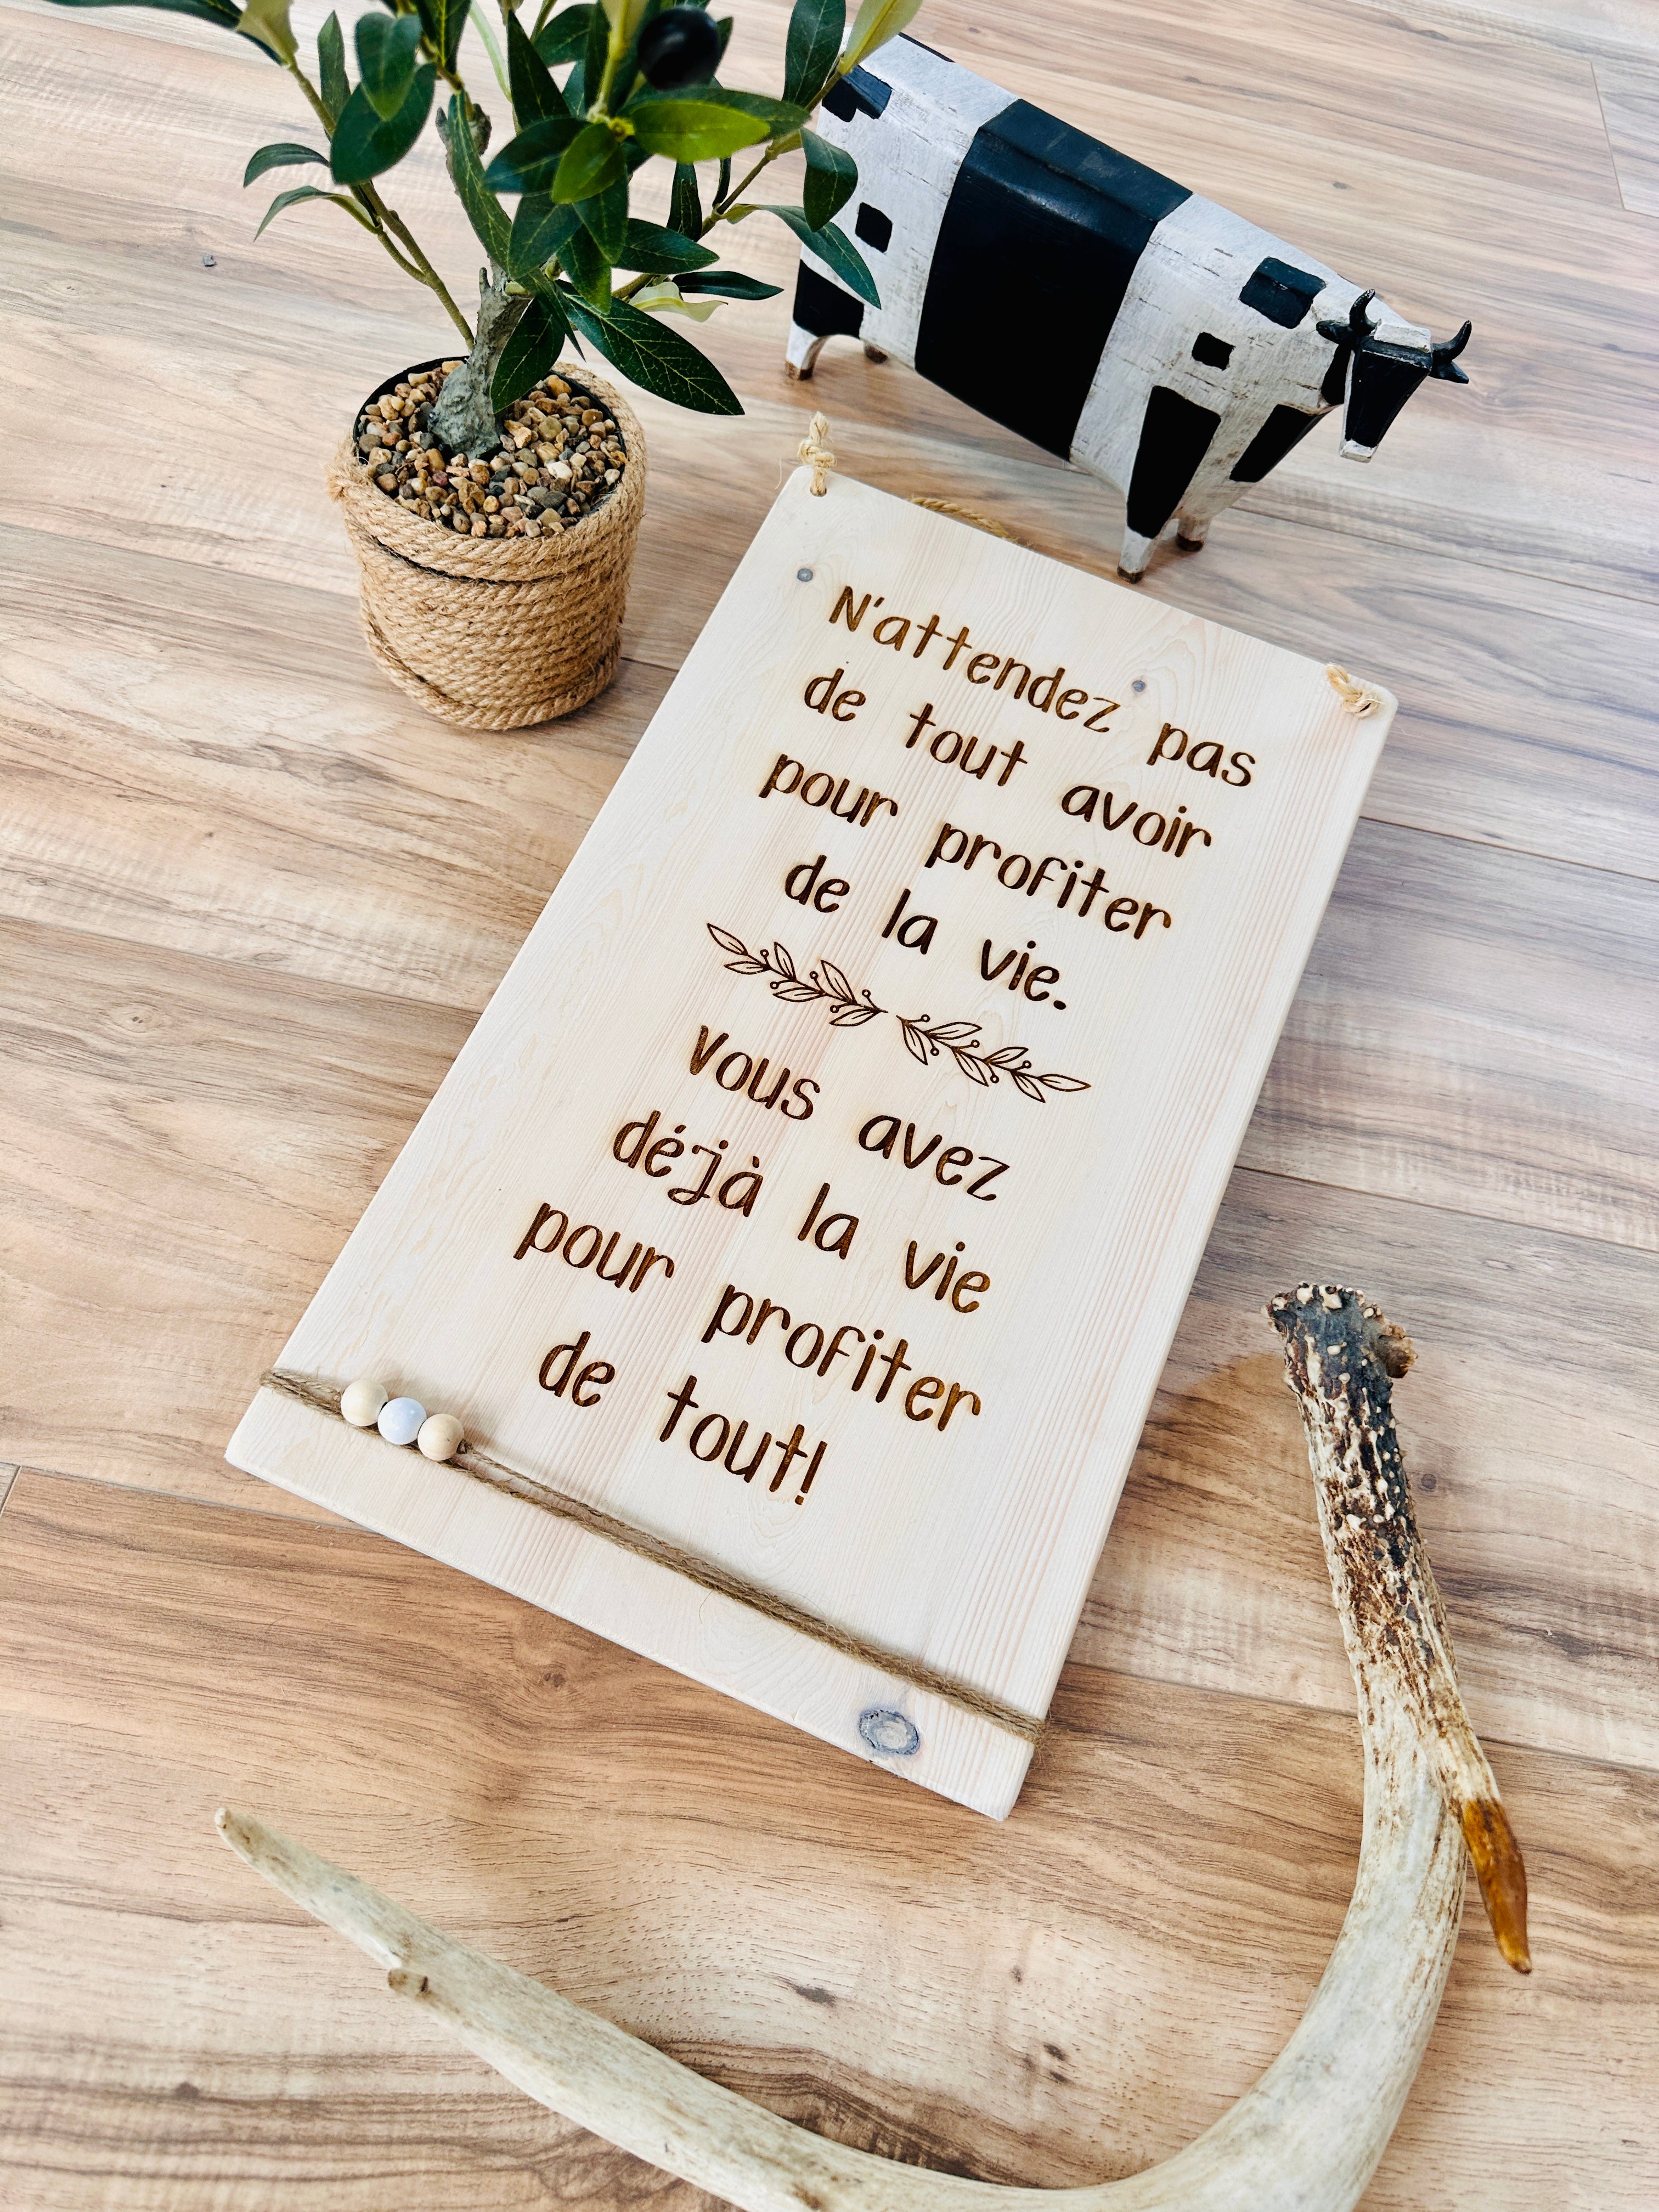 N'attendez pas
de tout avoir
pour profiter
de la vie.
vous avez
déjà la vie
pour profiter
de tout!